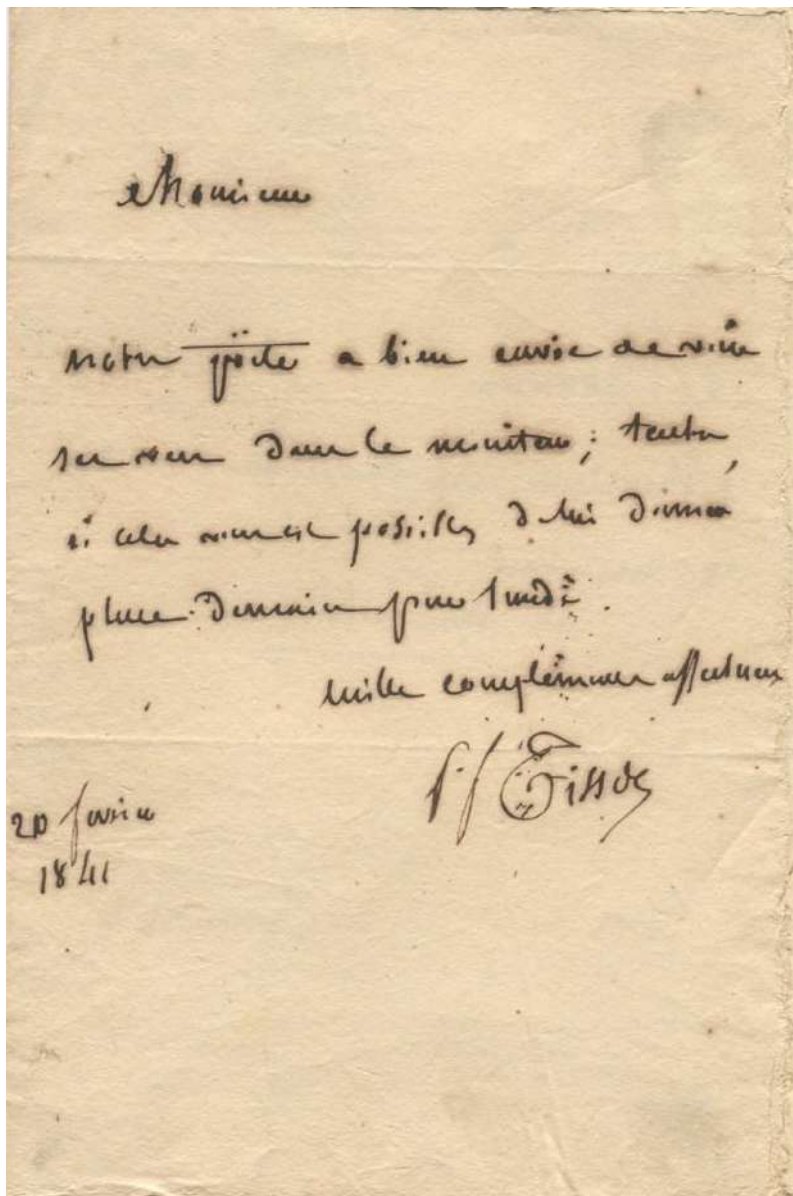 Monsieur
notre poëte a bien envie de voir
ses vers dans le moniteur; tentez,
si cela vous est possible, de lui donner
place demain pour lundi.
mille complémens affectueux
p. f Tissot
20 fevrier
1841